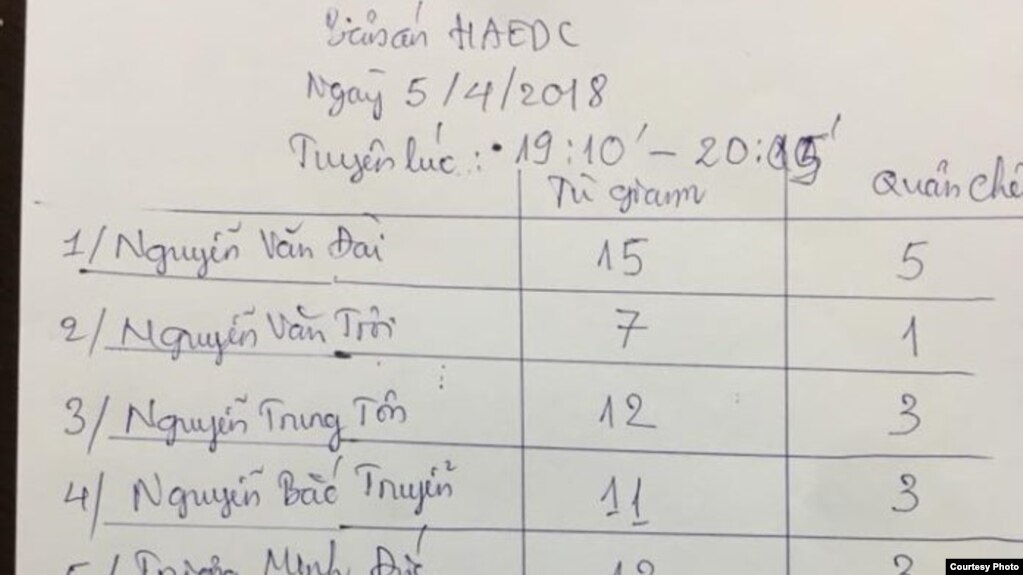 Bản án HAEDC
Ngày 5/4/2018
Tuyên lúc: 19:10' – 20:15'
Tù giam Quản chế
1/ Nguyễn Văn Đài 15 5
2/ Nguyễn Văn Trỗi 7 1
3/ Nguyễn Trung Tôn 12 3
4/ Nguyễn Bắc Truyển 11 3
5/ Trương Minh Đức 12 3
Courtesy Photo